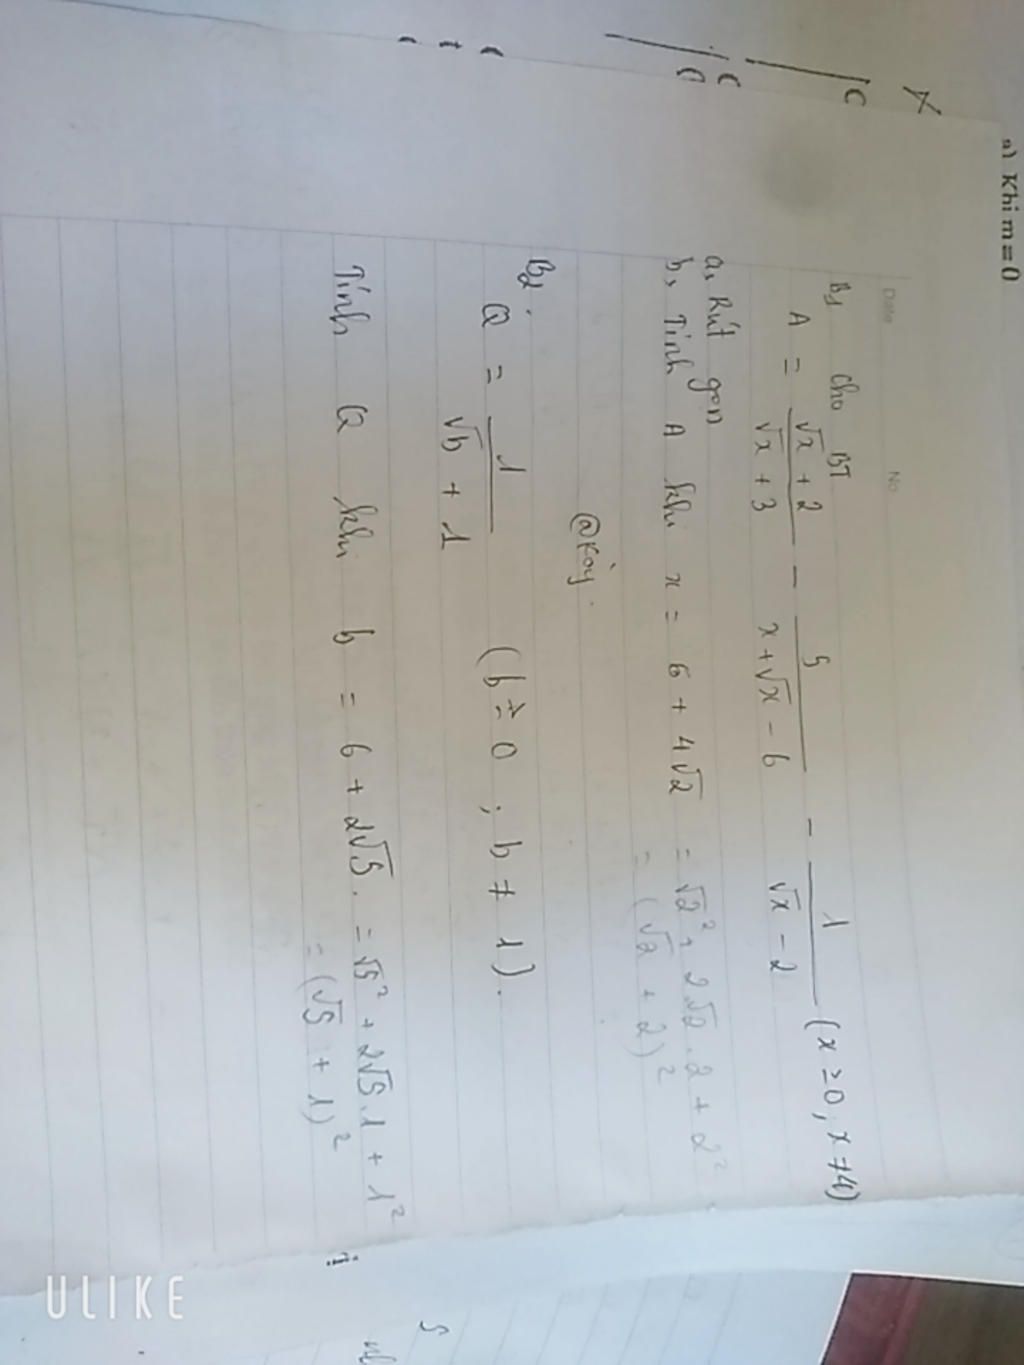 a) Khi m = 0
Date No
B1 Cho BT
A = \frac{\sqrt{x} + 2}{\sqrt{x} + 3} - \frac{5}{x + \sqrt{x} - 6} - \frac{1}{\sqrt{x} - 2} (x ≥ 0, x ≠ 4)
a, Rút gọn
b, Tính A khi x = 6 + 4√2 = √2² + 2√2.2 + 2²
= (√2 + 2)²
B2.
Q = \frac{1}{\sqrt{b} + 1} (b ≥ 0 ; b ≠ 1).
Tính Q khi b = 6 + 2√5. = √5² + 2√5.1 + 1²
= (√5 + 1)²
ULIKE